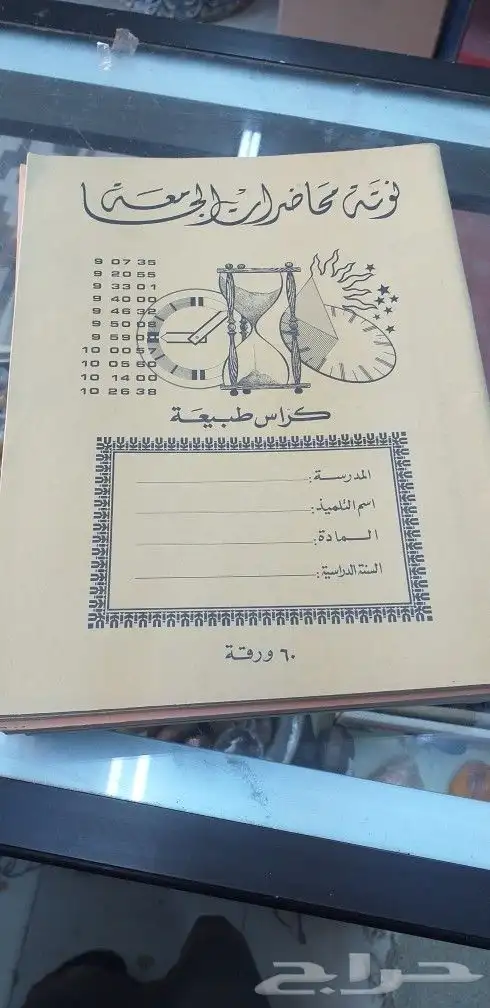 نوتة محاضرات الجامعة
9 07 35
9 20 55
9 33 01
9 40 00
9 46 32
9 50 08
9 59 01
10 00 57
10 05 60
10 14 00
10 26 38
كراس طبيعة
المدرسة:
اسم التلميذ:
المادة:
السنة الدراسية:
٦٠ ورقة
حراج